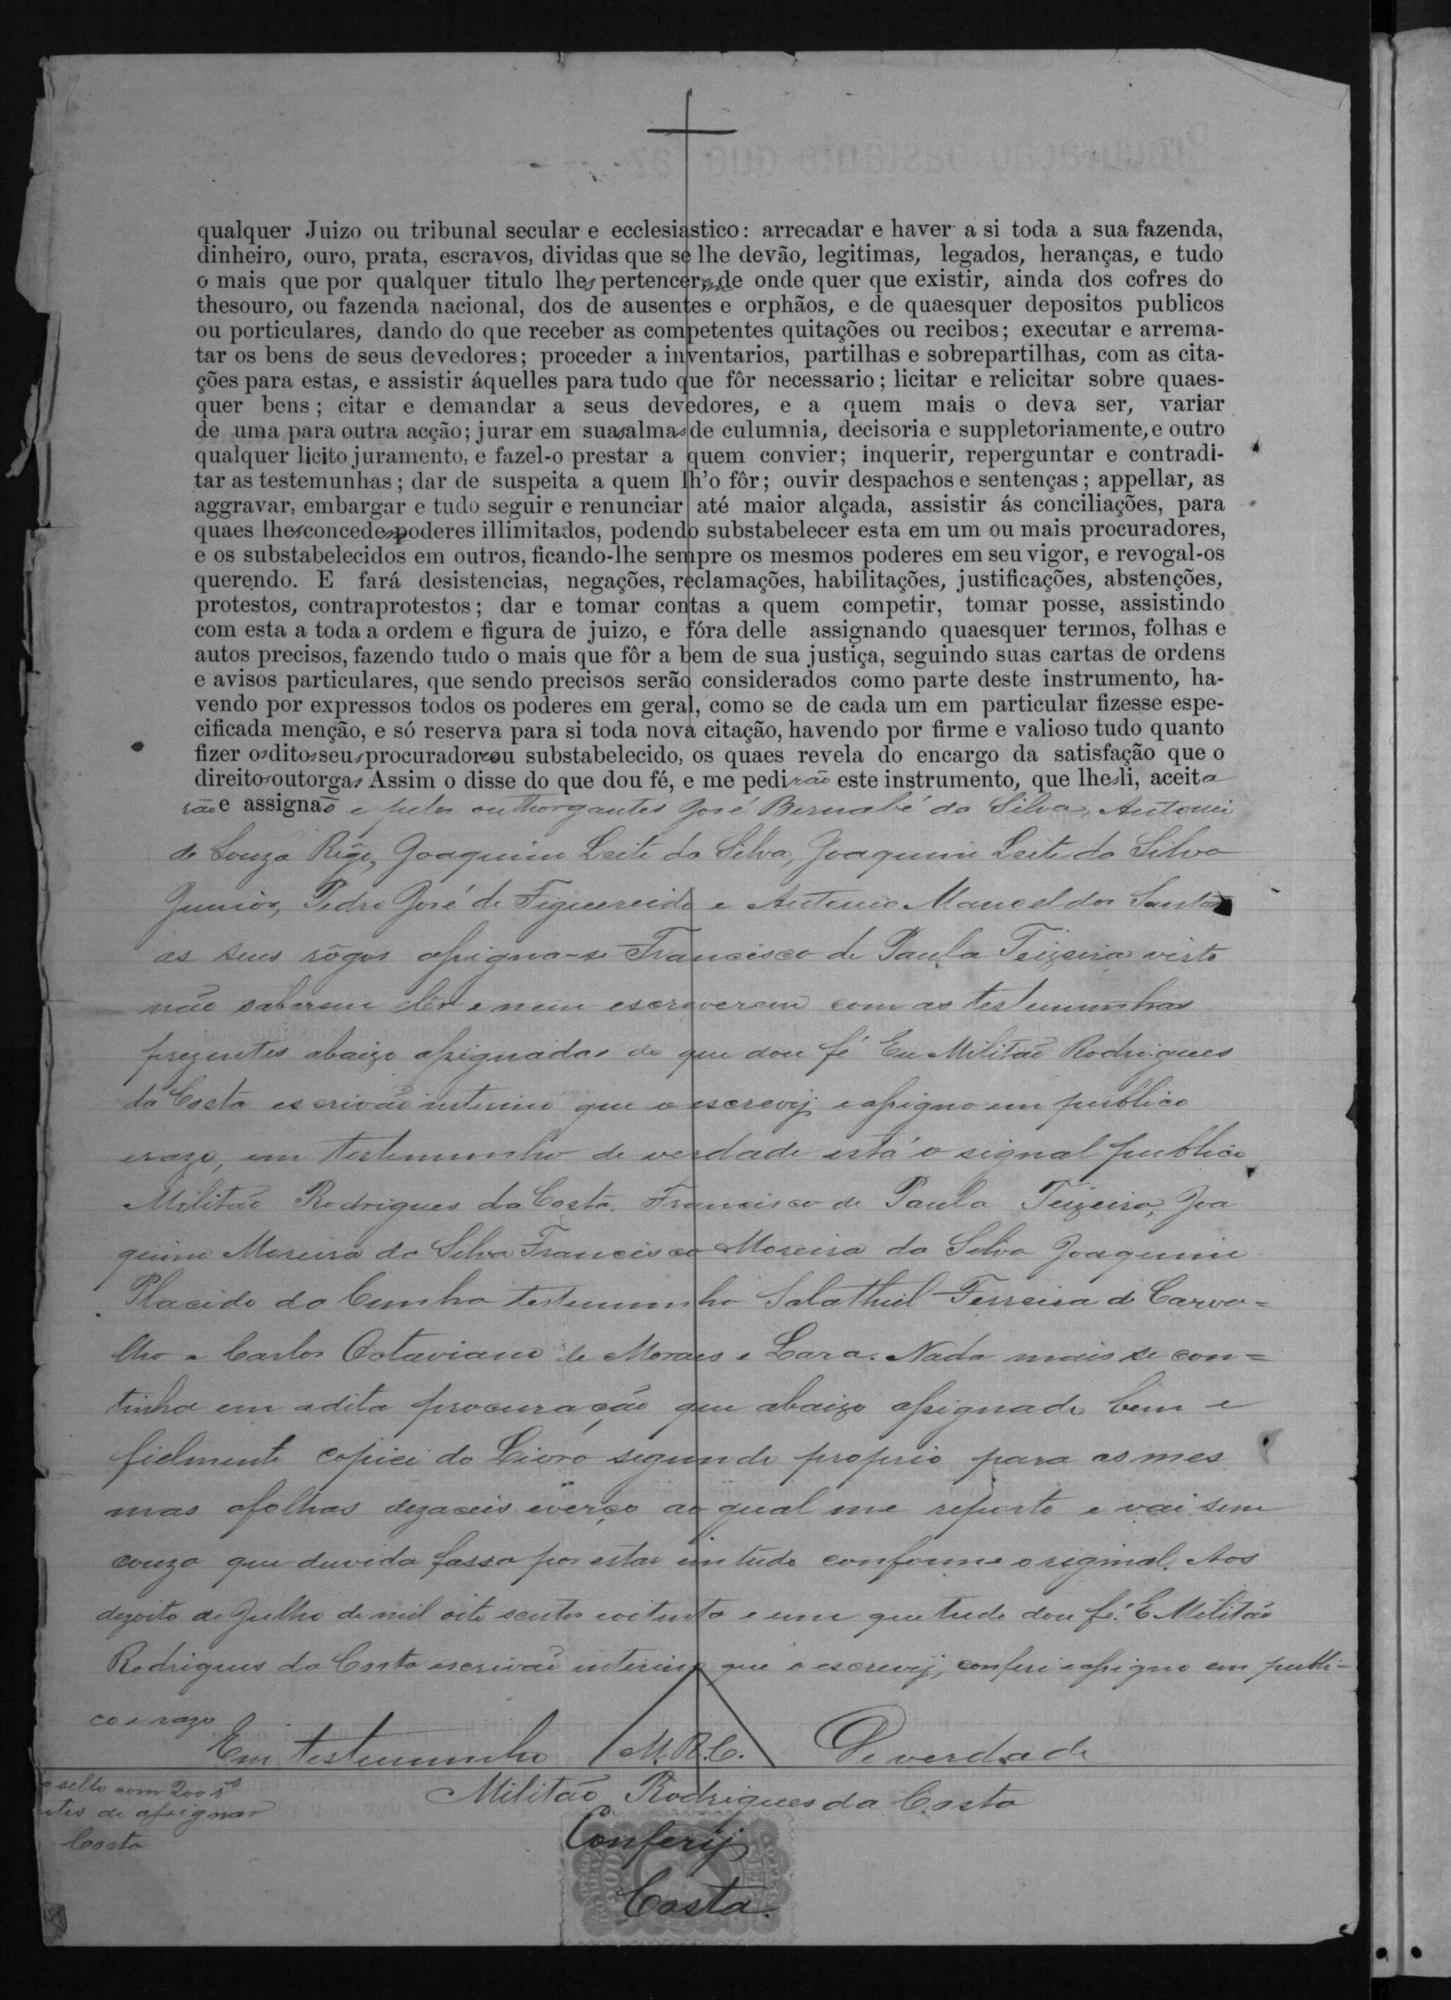 qualquer Juizo ou tribunal secular e ecclesiastico: arrecadar e haver a si toda a sua fazenda,
dinheiro, ouro, prata, escravos, dividas que se lhe devão, legitimas, legados, heranças, e tudo
o mais que por qualquer titulo lhes pertencerem de onde quer que existir, ainda dos cofres do
thesouro, ou fazenda nacional, dos de ausentes e orphãos, e de quaesquer depositos publicos
ou porticulares, dando do que receber as competentes quitações ou recibos; executar e arrema-
tar os bens de seus devedores; proceder a inventarios, partilhas e sobrepartilhas, com as cita-
ções para estas, e assistir áquelles para tudo que fôr necessario; licitar e relicitar sobre quaes-
quer bens; citar e demandar a seus devedores, e a quem mais o deva ser, variar
de uma para outra acção; jurar em suas almas de culumnia, decisoria e suppletoriamente, e outro
qualquer licito juramento, e fazel-o prestar a quem convier; inquerir, reperguntar e contradi-
tar as testemunhas; dar de suspeita a quem lh'o fôr; ouvir despachos e sentenças; appellar, as
aggravar, embargar e tudo seguir e renunciar até maior alçada, assistir ás conciliações, para
quaes lhes concedem poderes illimitados, podendo substabelecer esta em um ou mais procuradores,
e os substabelecidos em outros, ficando-lhe sempre os mesmos poderes em seu vigor, e revogal-os
querendo. E fará desistencias, negações, reclamações, habilitações, justificações, abstenções,
protestos, contraprotestos; dar e tomar contas a quem competir, tomar posse, assistindo
com esta a toda a ordem e figura de juizo, e fóra delle assignando quaesquer termos, folhas e
autos precisos, fazendo tudo o mais que fôr a bem de sua justiça, seguindo suas cartas de ordens
e avisos particulares, que sendo precisos serão considerados como parte deste instrumento, ha-
vendo por expressos todos os poderes em geral, como se de cada um em particular fizesse espe-
cificada menção, e só reserva para si toda nova citação, havendo por firme e valioso tudo quanto
fizer os ditos seus procuradores ou substabelecido, os quaes revela do encargo da satisfação que o
direito outorga. Assim o disse do que dou fé, e me pedirão este instrumento, que lhes li, aceita
rão e assignão e pelos outhorgantes José Bernabé da Silva, Antonio
de Souza Rêgo, Joaquim Leite da Silva, Joaquim Leite da Silva
Junior, Pedro José de Figuereido e Antonio Manoel dos Santos
as seus rôgos assigna-se Francisco de Paula Teixeira visto
não saberem lêr e nem escreverem com as testemunhas
prezentes abaixo assignadas do que dou fé Eu Militão Rodrigues
da Costa escrivão interino que o escrevij e assigno em publico
erazo, em testemunho de verdade está o signal publico
Militão Rodrigues da Costa. Francisco de Paula Teixeira, Joa
quim Moreira da Silva Francisco Moreira da Silva Joaquim
Placido da Cunha testemunha Salathiel Ferreira de Carva=
lho e Carlos Octaviano de Moraes e Lara. Nada mais se con=
tinha em adita procuração que abaixo assignado bem e
fielmente copiei do Livro segundo proprio para as mes
mas afolhas dezaceis everço ao qual me reporto e vai sem
couza que duvida fassa por estar em tudo conforme original. Aos
dezoito de Julho de mil oito sentos eoitenta e um que tudo dou fé. E Militão
Rodrigues da Costa escrivão interino que o escrevij, conferi eassigno em publi-
co e razo
Em testemunho M.R.C. De verdade
Militão Rodrigues da Costa
sello com 200 rs
de assignar
Costa
Conferij
Costa.